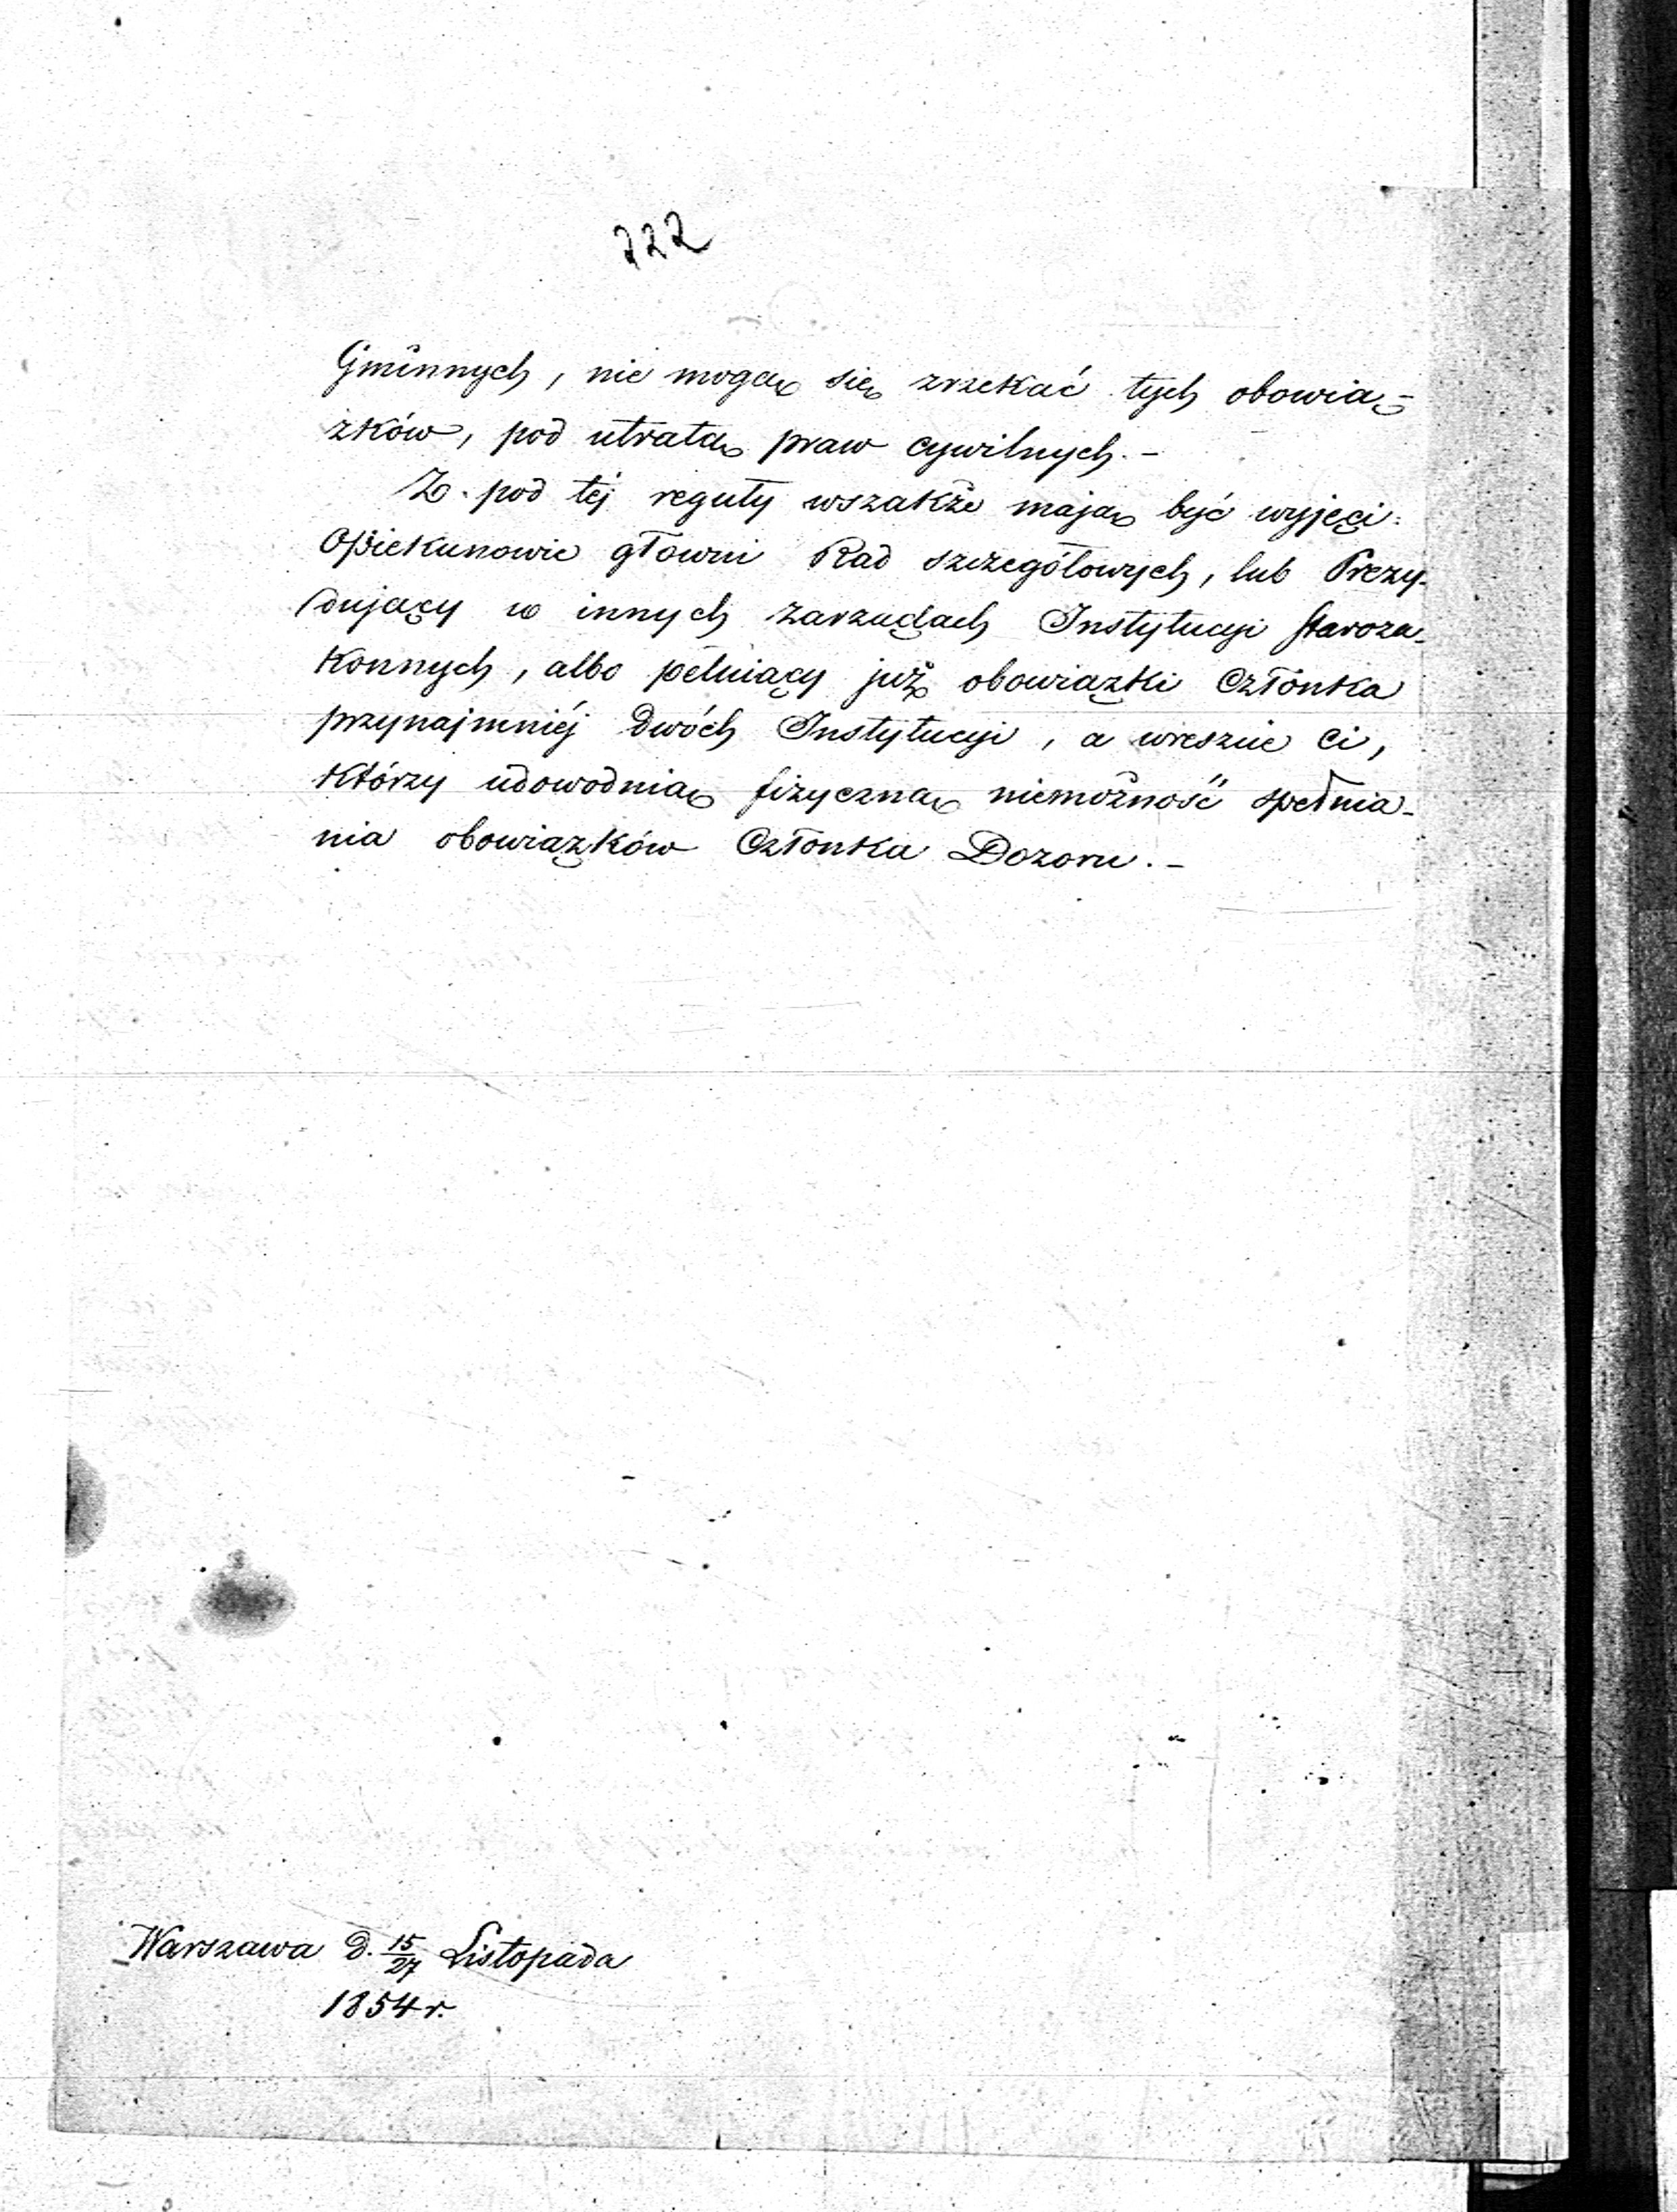 722
Gminnych, nie mogą się zrzekać tych obowią-
zków, pod utratą praw cywilnych. -
Z pod tej reguły wszakże mają być wyjęci:
Opiekunowie główni Rad szczegółowych, lub Prezy-
dujący w innych zarządach Instytucyi Staroza-
konnych, albo pełniący już obowiązki Członka
przynajmniéj dwóch Instytucyi, a wreszcie Ci,
którzy udowodnią fizyczną niemożność spełnia-
nia obowiązków Członka Dozoru. -
Warszawa d. 15/27 Listopada
1854 r.